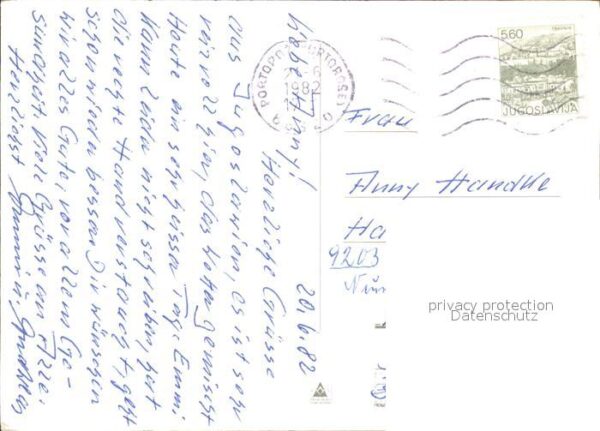 20.6.82
Liebe Anny!
Herzliche Grüsse
aus Jugoslawien, es ist sehr
reizvoll hier, das Wetter gemischt
Heute ein sehr heisser Tag. Emmi
kann leider nicht schreiben, hat
die rechte Hand verstaucht, geht
schon wieder besser. Dir wünschen
wir alles Gute, vor allem Ge-
sundheit. Viele Grüsse an
Herzlichst Emmi u.
PORTOROŽ - PORTOROSE
1982
5,60
JUGOSLAVIJA
Frau
Anny Handke
Ha
9203
Nür
privacy protection
Datenschutz